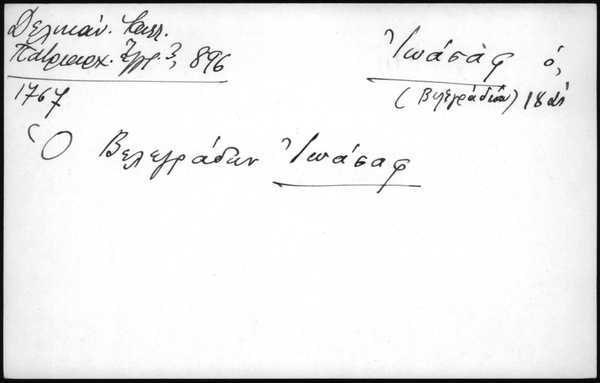 Δελικάν. Καλλ.
Πατριαρχ. Ἔγγρ. 3, 896
1767
Ἰωάσαφ ὁ,
(Βελεγράδων) 18 αἰ
Ὁ Βελεγράδων Ἰωάσαφ